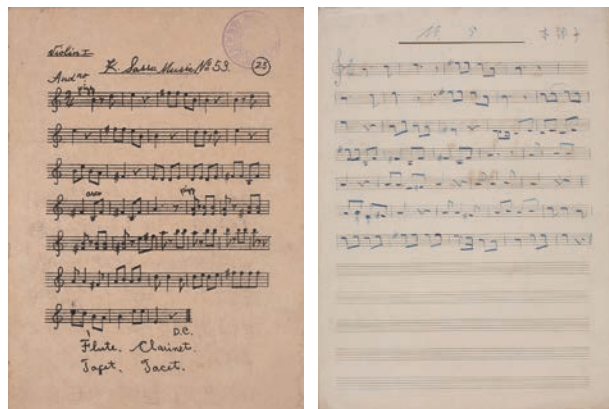 Violin I
K. Sassa Music № 53. 25
Andno
pizz
arco
pizz
D.C.
Flute. Clarinet.
Tacet. Tacet.